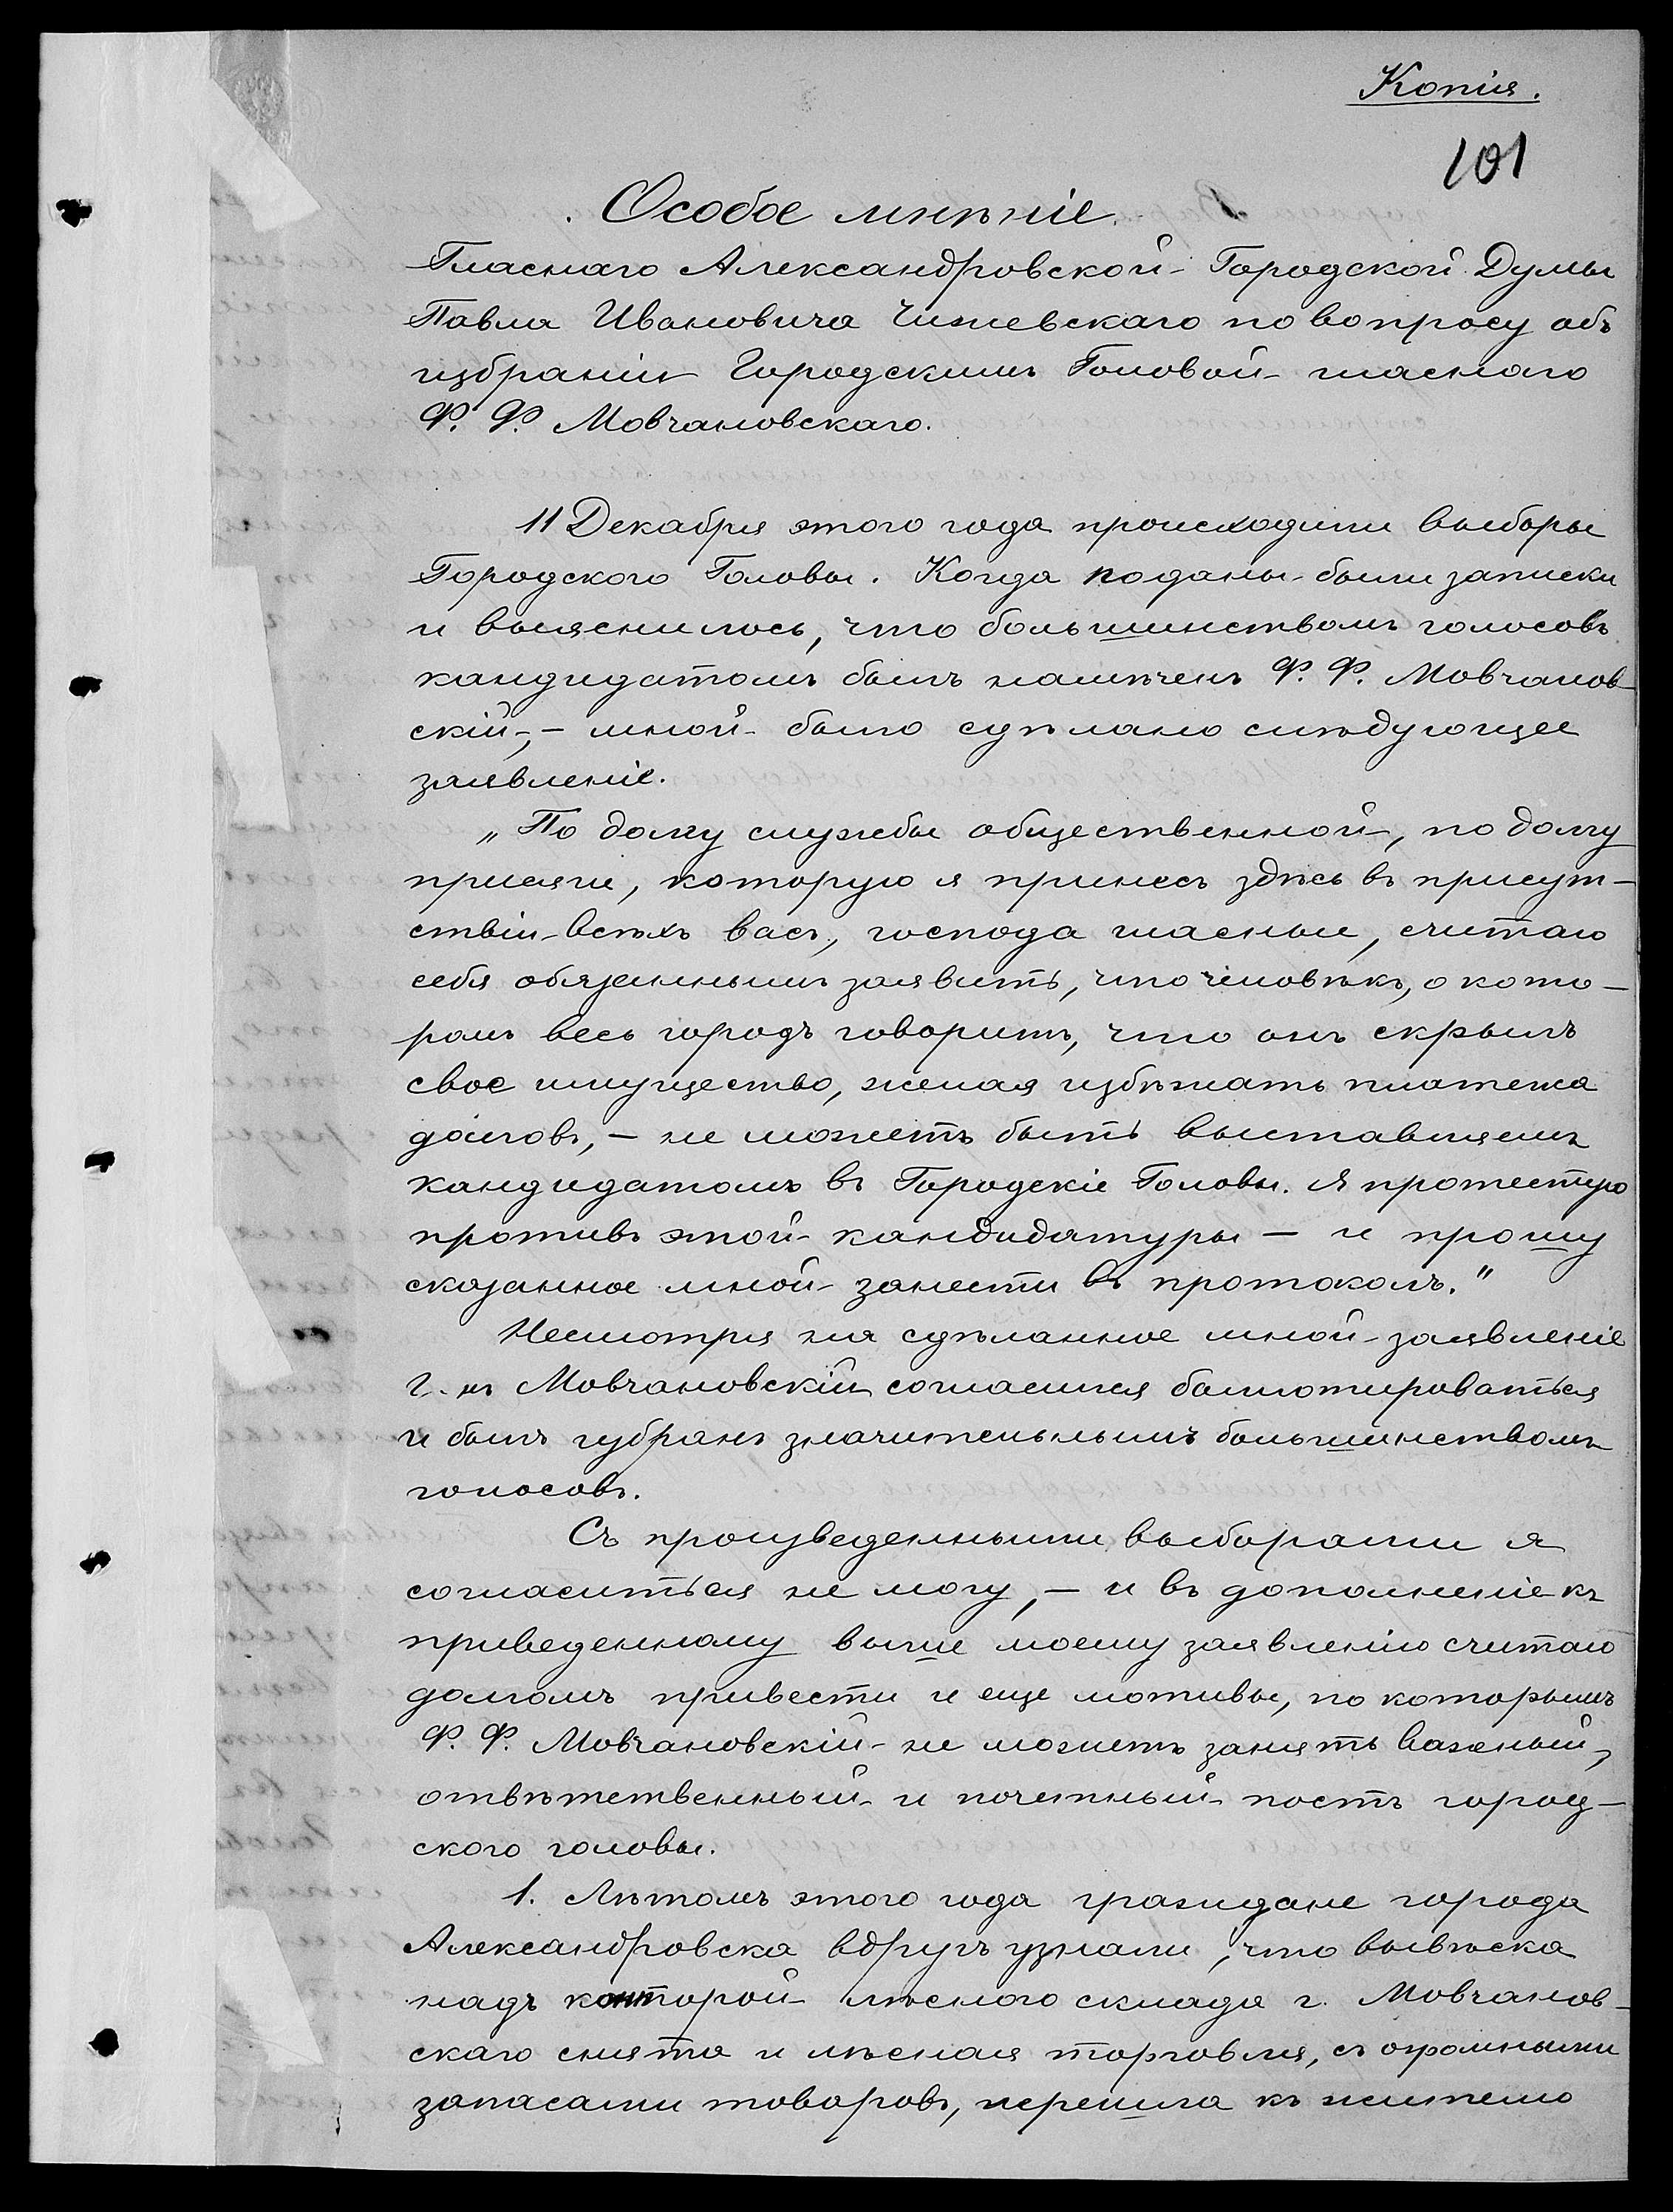 Копія.
101
Особое мнѣніе
Гласнаго Александровской Городской Думы
Павла Ивановича Чижевскаго по вопросу объ
избраніи Городскимъ Головой гласнаго
Ф. Ф. Мовчановскаго.
11 Декабря этого года происходили выборы
Городского Головы. Когда поданы были записки
и выяснилось, что большинствомъ голосовъ
кандидатомъ былъ намѣченъ Ф. Ф. Мовчанов-
скій, – мной было сдѣлано слѣдующее
заявленіе.
„По долгу службы общественной, по долгу
присяги, которую я принесъ здѣсь въ присут-
ствіи всѣхъ васъ, господа гласные, считаю
себя обязаннымъ заявить, что человѣкъ, о кото-
ромъ весь городъ говоритъ, что онъ скрылъ
свое имущество, желая избѣжать платежа
долговъ, – не можетъ быть выставляемъ
кандидатомъ въ Городскіе Головы. Я протестую
противъ этой кандидатуры – и прошу
сказанное мной занести въ протоколъ."
Несмотря на сдѣланное мной заявленіе
г-нъ Мовчановскій согласился баллотироваться
и былъ избранъ значительнымъ большинствомъ
голосовъ.
Съ произведенными выборами я
согласиться не могу, – и въ дополненіе къ
приведенному выше моему заявленію считаю
долгомъ привести и еще мотивы, по которымъ
Ф. Ф. Мовчановскій не можетъ занять важный,
отвѣтственный и почетный постъ город-
ского головы.
1. Лѣтомъ этого года граждане города
Александровска вдругъ узнали, что вывѣска
надъ конторой лѣсного склада г. Мовчанов-
скаго снята и лѣсная торговля, съ огромными
запасами товаровъ, перешла къ жителю